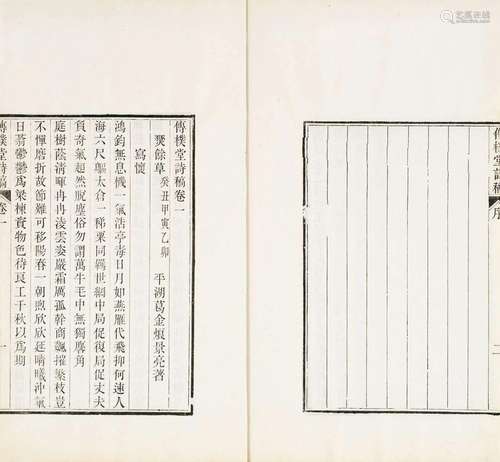 傳樸堂詩稿 序 一
傳樸堂詩稿卷一
燹餘草癸丑甲寅乙卯 平湖葛金烺景亮著
寫懷
鴻鈞無息機一氣浩亭毒日月如燕雁代飛抑何速人
海六尺軀太倉一稊粟同羈世網中局促復局促丈夫
負奇氣超然脫塵俗勿謂萬牛毛中無獨麐角
庭樹蔭清暉冉冉淩雲姿嚴霜厲孤幹商飆摧繁枝豈
不憚磨折故節難可移陽春一朝煦欣欣延晴曦沖氣
日蓊鬱鬱爲梁棟資物色待良工千秋以爲期
傳樸堂詩稿 卷一 一